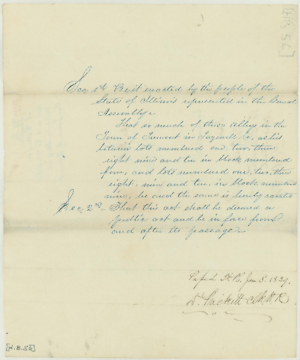 Sec 1st Be it enacted by the people of the
State of Illinois represented in the General
Assembly.
That so much of those alleys in the
Town of Tremont in Tazewell Co, as lies
between lots numbered one, two, three,
eight nine and ten in block numbered
four, and lots numbered one, two, three
eight, nine and ten in block numbered
nine, be and the same is hereby vacated
Sec, 2nd, That this act shall be deemed a
public act and be in force from
and after its passage
Jan 8. 1839.
[H.B. 52]